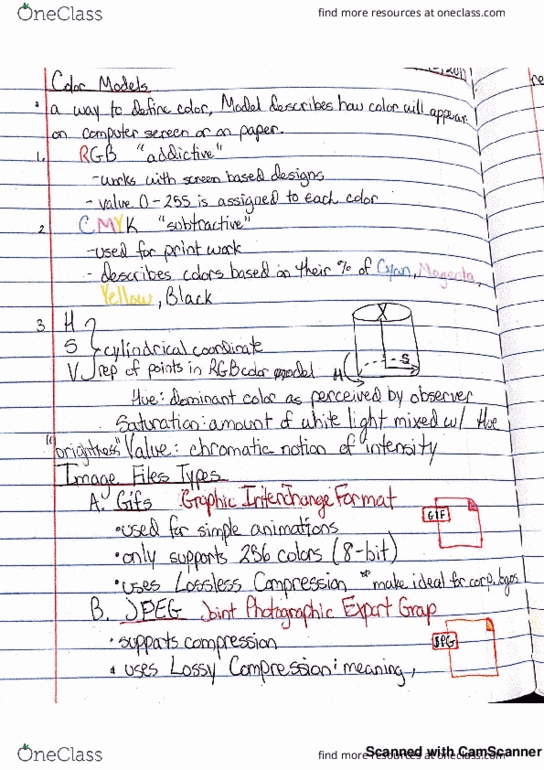 OneClass
find more resources at oneclass.com
Color Models
a way to define color, Model describes how color will appear
on computer screen or on paper.
1. RGB "addictive"
-works with screen based designs
- value 0-255 is assigned to each color
2 CMYK "subtractive"
-used for print work
- describes colors based on their % of Cyan, Magenta,
Yellow, Black
3 H
S cylindrical coordinate
V rep of points in RGB color model
H
S
Hue: dominant color as perceived by observer
Saturation: amount of white light mixed w/ Hue
"brightness" Value: chromatic notion of intensity
Image Files Types
A. Gifs Graphic Interchange Format
•used for simple animations
GIF
•only supports 256 colors (8-bit)
•uses Lossless Compression *make ideal for corp. logos
B. JPEG Joint Photographic Expert Group
•supports compression
JPG
•uses Lossy Compression: meaning,
OneClass
find more resources at oneclass.com
Scanned with CamScanner